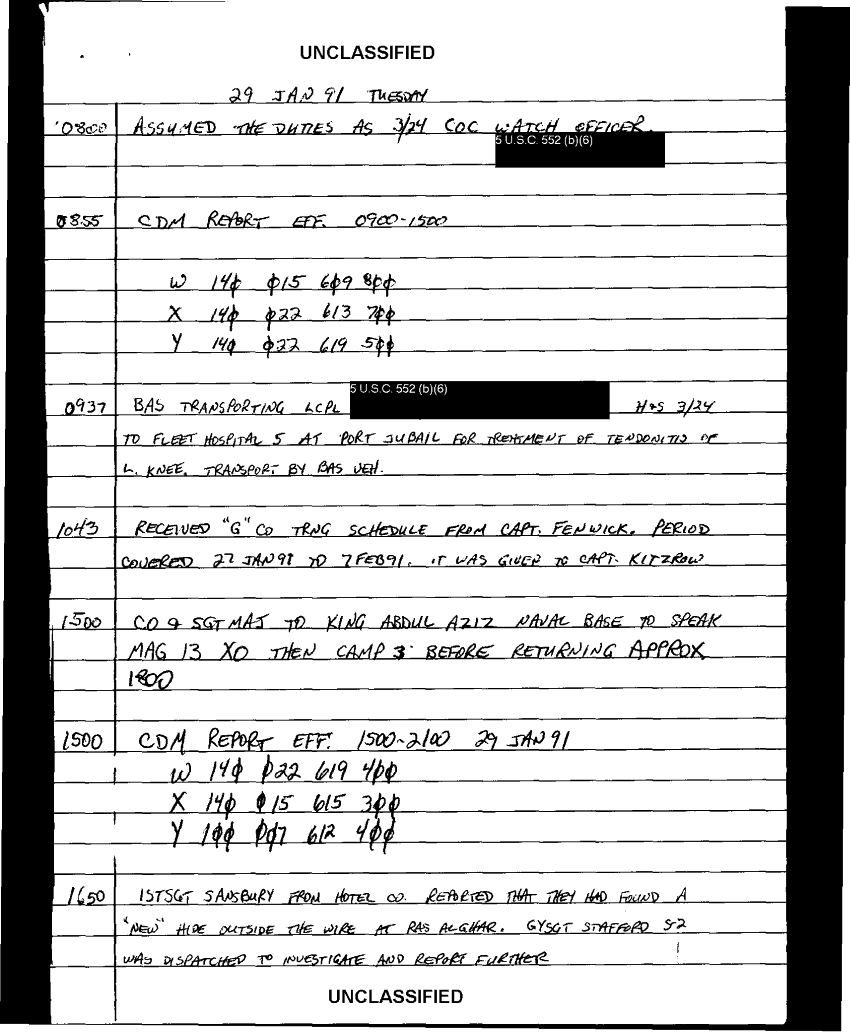 UNCLASSIFIED
29 JAN 91 TUESDAY
0800 ASSUMED THE DUTIES AS 3/24 COC WATCH OFFICER.
5 U.S.C. 552 (b)(6)
0855 CDM REPORT EFF. 0900-1500
W 14φ φ15 6φ9 8φφ
X 14φ φ22 613 7φφ
Y 14φ φ22 619 5φφ
5 U.S.C. 552 (b)(6)
0937 BAS TRANSPORTING LCPL H+S 3/24
TO FLEET HOSPITAL 5 AT PORT JUBAIL FOR TREATMENT OF TENDONITIS OF
L. KNEE. TRANSPORT BY BAS VEH.
1043 RECEIVED "G" CO TRNG SCHEDULE FROM CAPT. FENWICK. PERIOD
COVERED 27 JAN 91 TO 7 FEB 91. IT WAS GIVEN TO CAPT. KITZROW
1500 CO & SGT MAJ TO KING ABDUL AZIZ NAVAL BASE TO SPEAK
MAG 13 XO THEN CAMP 3 BEFORE RETURNING APPROX
1800
1500 CDM REPORT EFF. 1500-2100 29 JAN 91
W 14φ φ22 619 4φφ
X 14φ φ15 615 3φφ
Y 1φφ φφ7 612 4φφ
1650 1STSGT SANSBURY FROM HOTEL CO. REPORTED THAT THEY HAD FOUND A
"NEW" HIDE OUTSIDE THE WIRE AT RAS ALGHAR. GYSGT STAFFORD S-2
WAS DISPATCHED TO INVESTIGATE AND REPORT FURTHER
UNCLASSIFIED